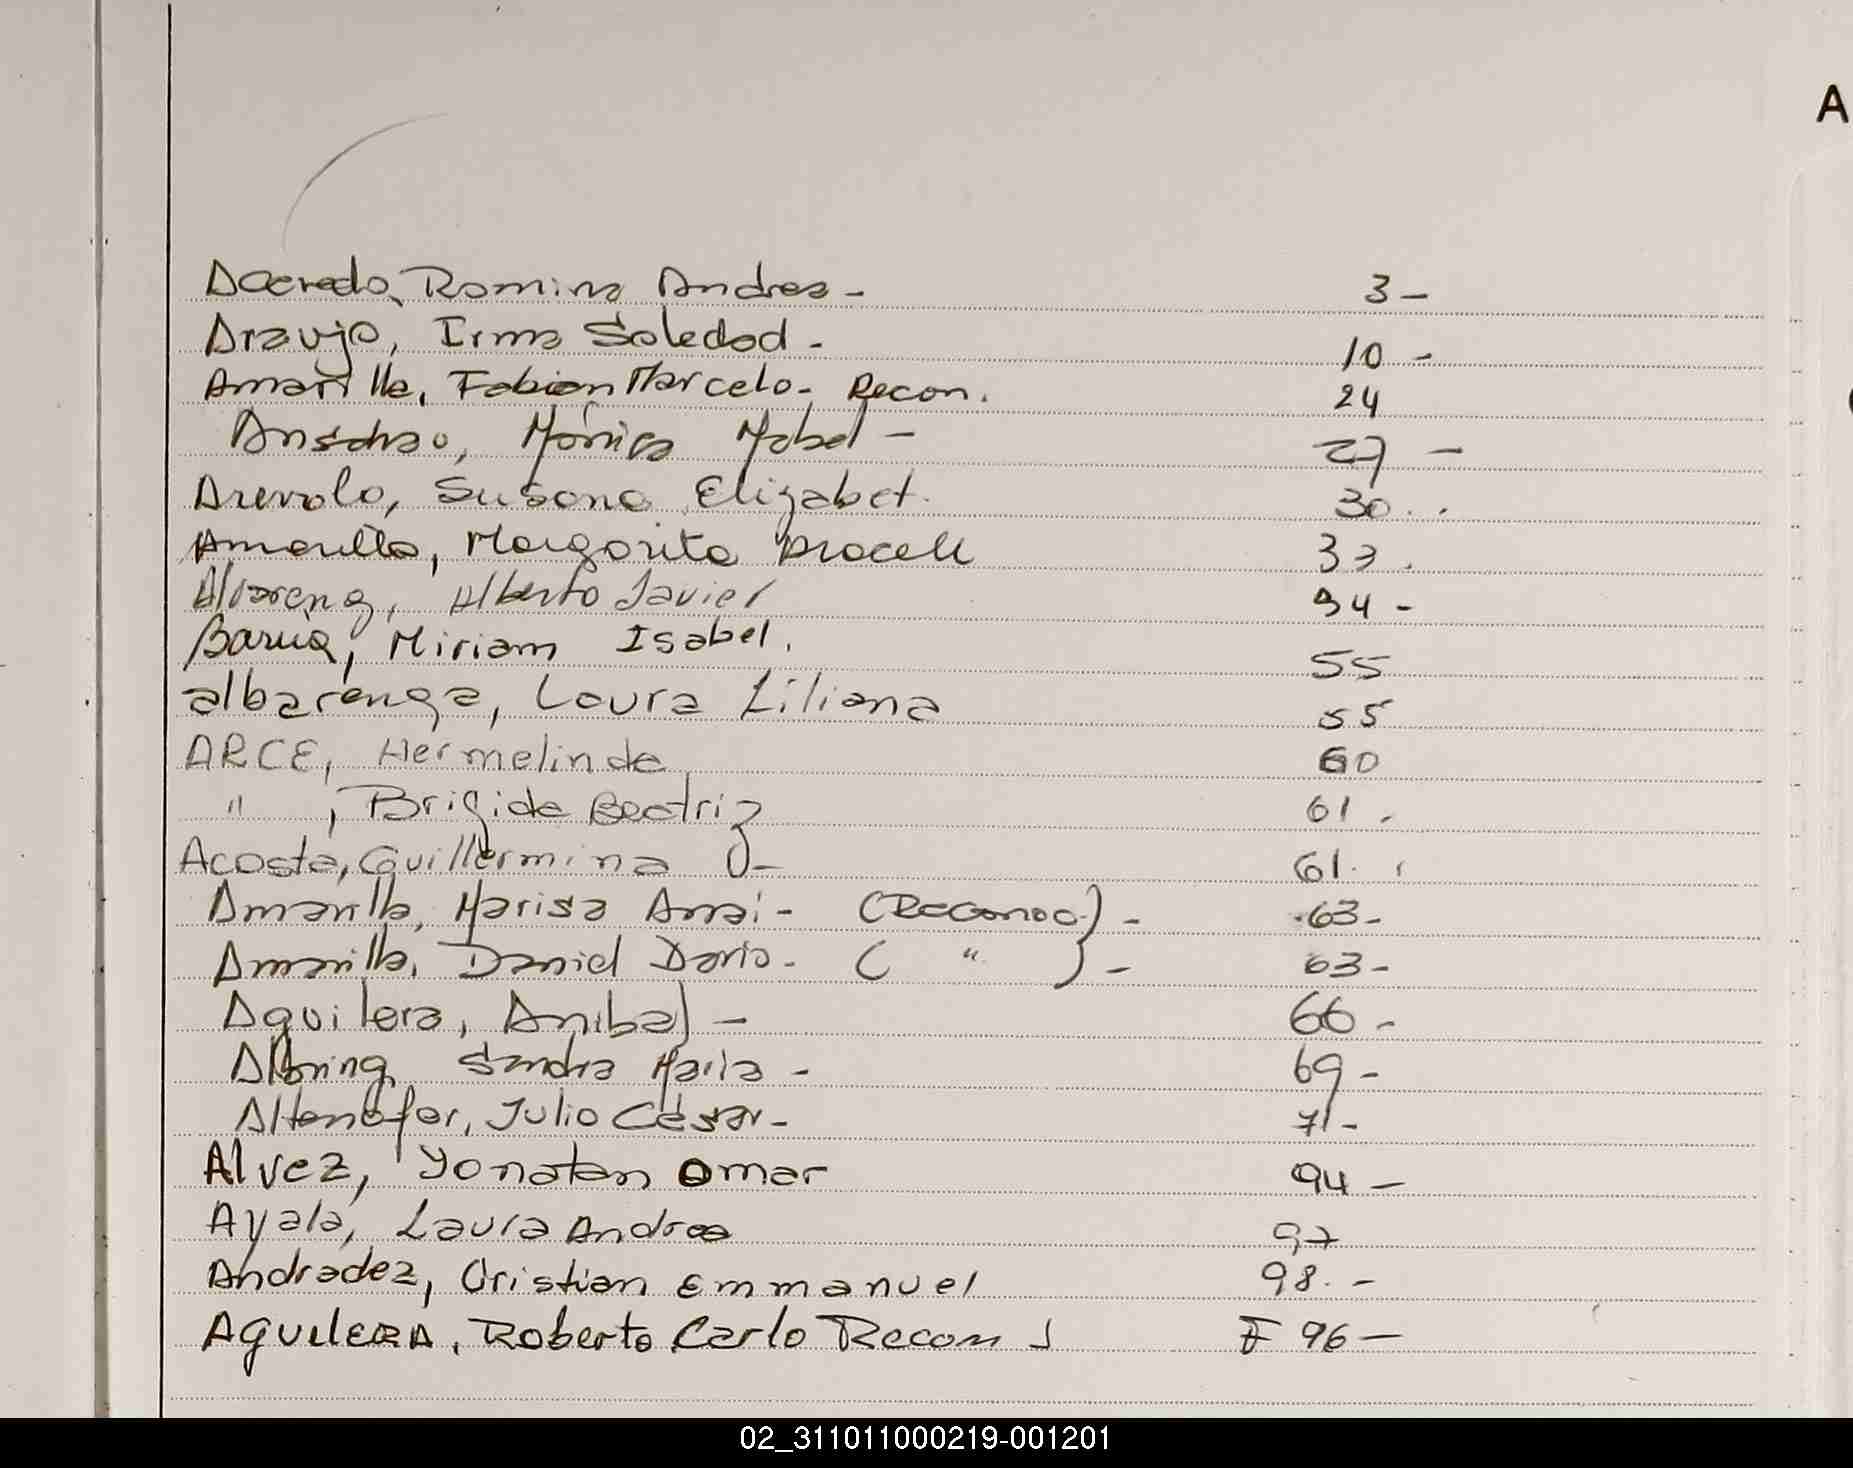 A
Acevedo, Romina Andrea - 3 -
Araujo, Irma Soledad - 10 -
Amarilla, Fabian Marcelo - Recon. 24
Mónica Mabel - 27 -
Arevalo, Susana Elizabet. 30
Amarilla, Margarita Araceli 33
Alvarenga, Alberto Javier 34 -
Barua, Miriam Isabel. 55
albarenga, Laura Liliana 55
ARCE, Hermelinda 60
" , Brigida Beatriz 61
Acosta, Guillermina - 61
Amarilla, Marisa Anai - (Reconoc.) - 63 -
Amarilla, Daniel Dario - ( " ) - 63 -
Aguilera, Anibal - 66 -
Sandra Maria - 69 -
Altenofer, Julio César - 71 -
Alvez, Yonatan Omar 94 -
Ayala, Laura Andrea 97
Andradez, Cristian Emmanuel 98 -
AGUILERA, Roberto Carlo Recon F 96 -
02_311011000219-001201